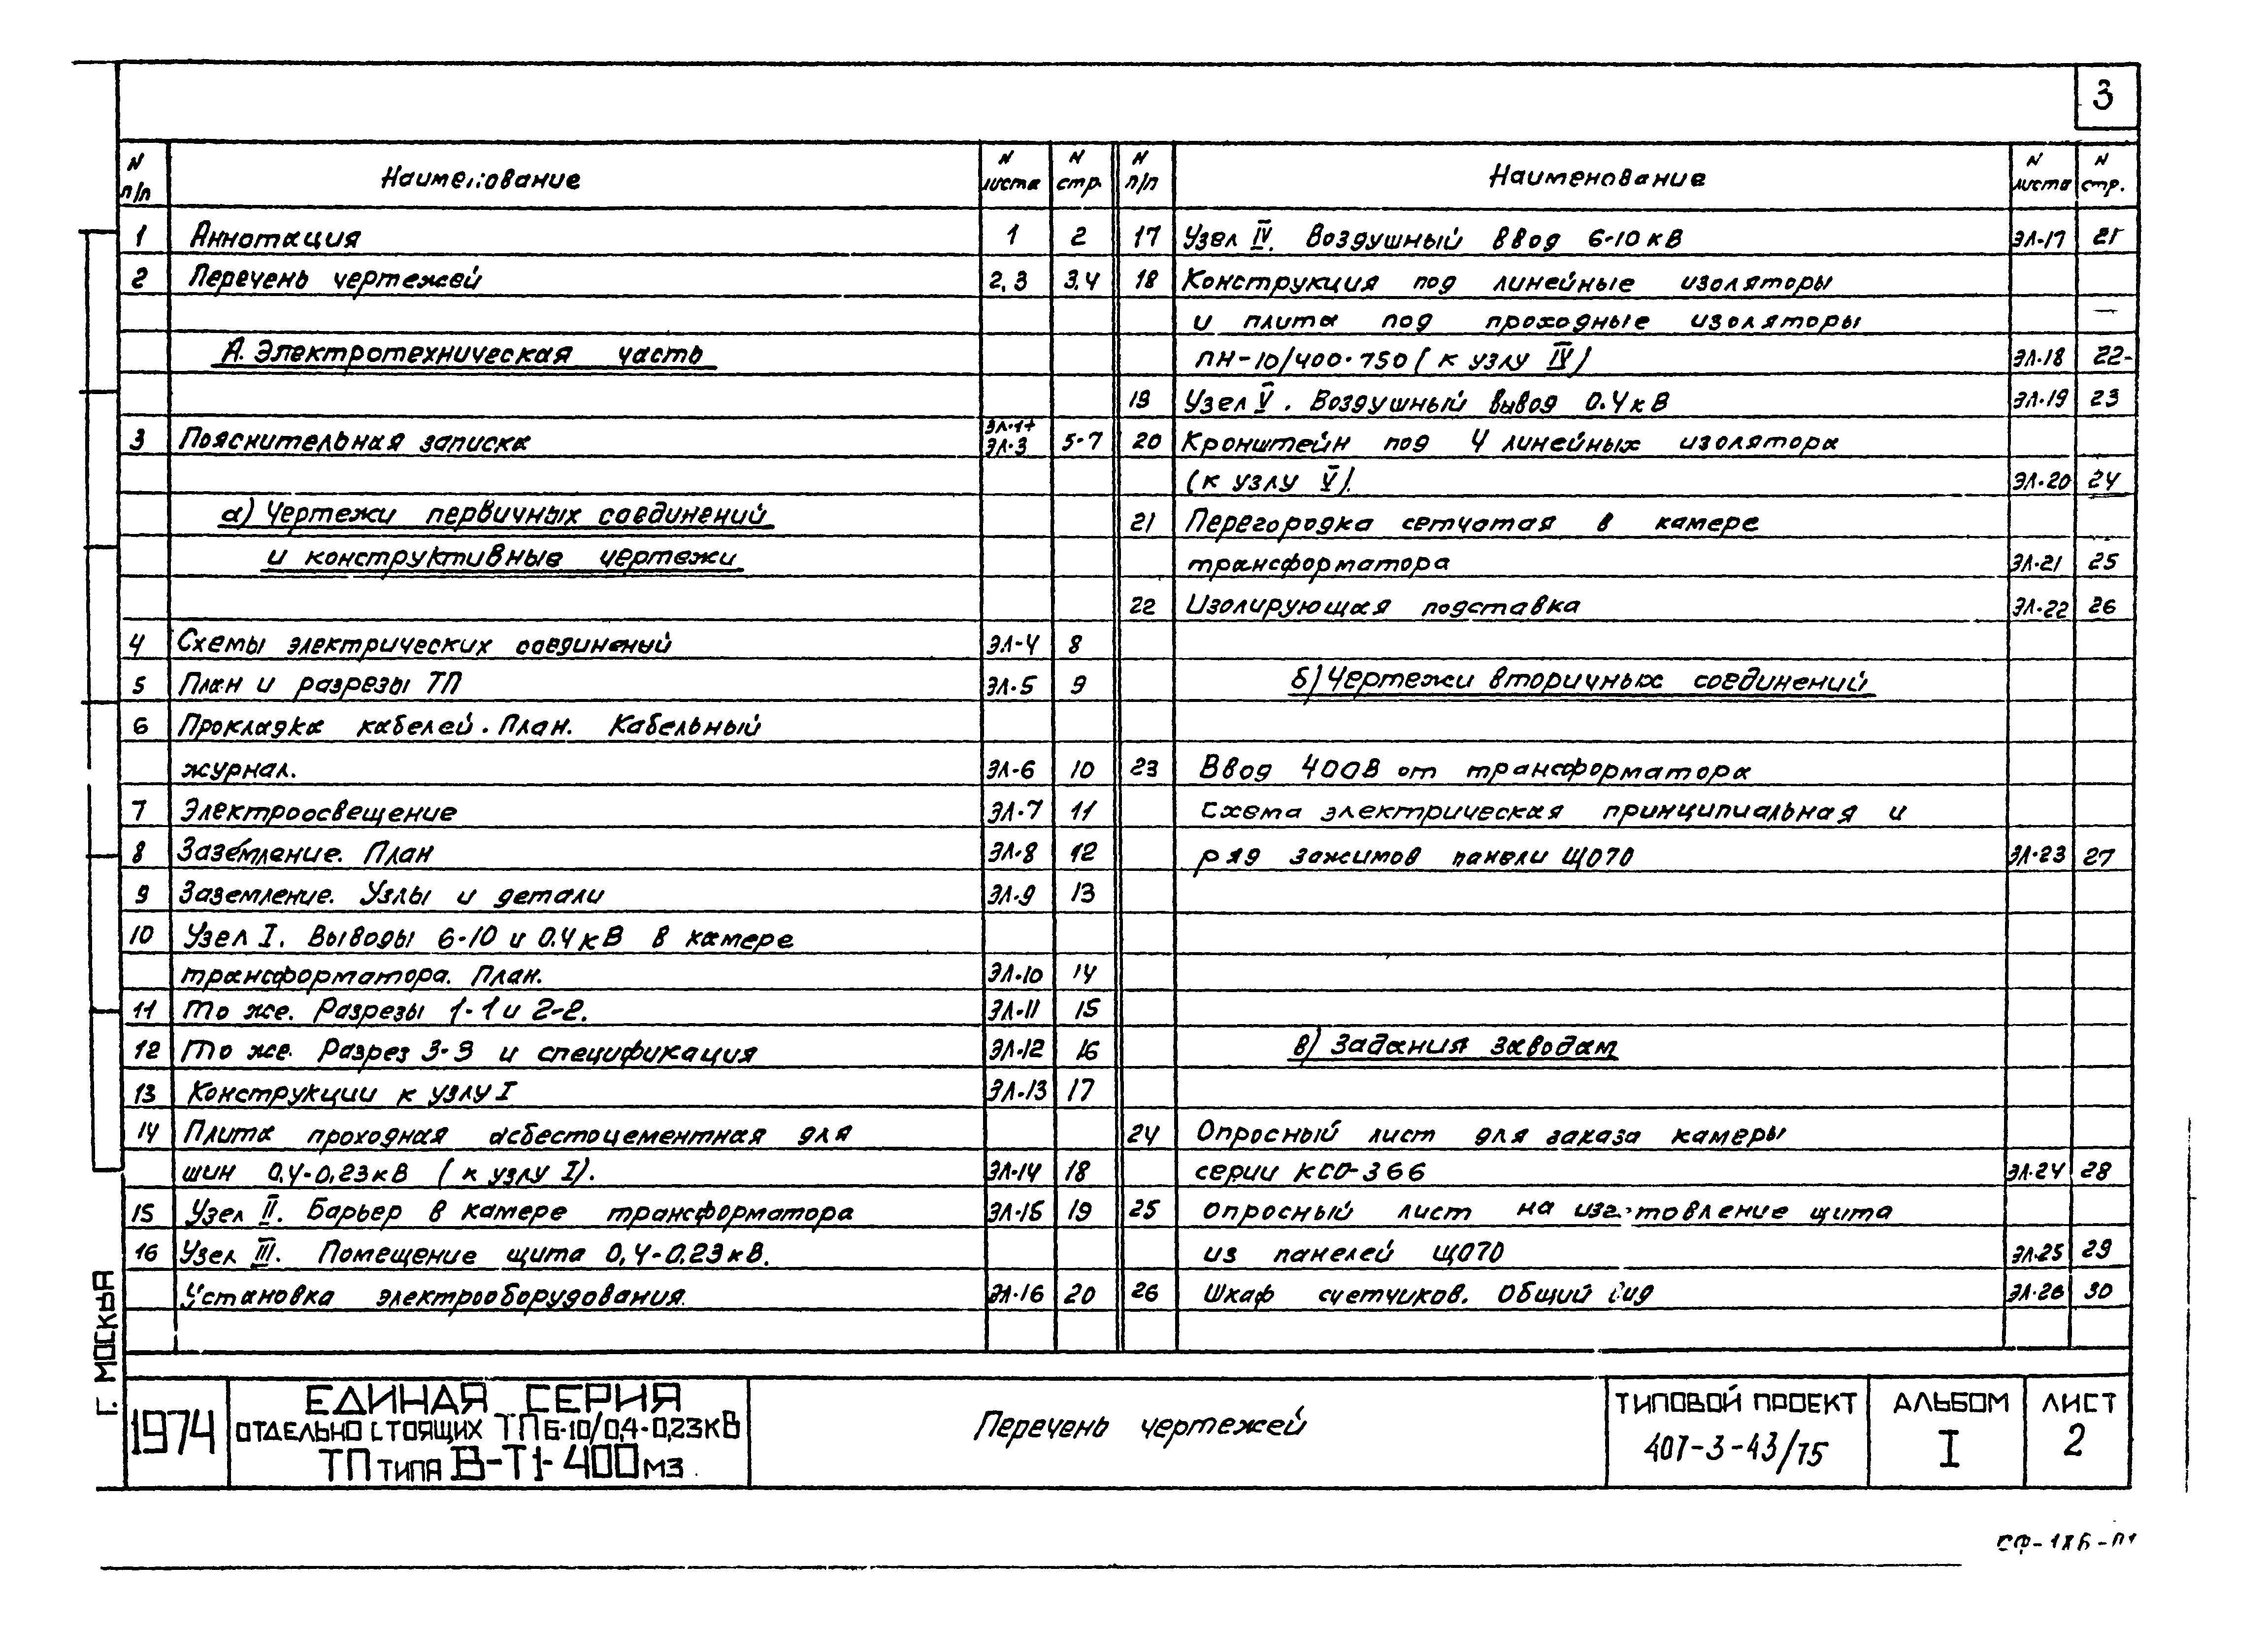 3
N п/п Наименование N листа N стр.
1 Аннотация 1 2
2 Перечень чертежей 2,3 3,4
А. Электротехническая часть
3 Пояснительная записка ЭЛ-1÷ ЭЛ-3 5-7
а) Чертежи первичных соединений
и конструктивные чертежи
4 Схемы электрических соединений ЭЛ-4 8
5 План и разрезы ТП ЭЛ-5 9
6 Прокладка кабелей. План. Кабельный
журнал. ЭЛ-6 10
7 Электроосвещение ЭЛ-7 11
8 Заземление. План ЭЛ-8 12
9 Заземление. Узлы и детали ЭЛ-9 13
10 Узел I. Выводы 6-10 и 0.4кВ в камере
трансформатора. План. ЭЛ-10 14
11 То же. Разрезы 1-1 и 2-2. ЭЛ-11 15
12 То же. Разрез 3-3 и спецификация ЭЛ-12 16
13 Конструкции к узлу I ЭЛ-13 17
14 Плита проходная асбестоцементная для
шин 0,4-0,23кВ (к узлу I). ЭЛ-14 18
15 Узел II. Барьер в камере трансформатора ЭЛ-15 19
16 Узел III. Помещение щита 0,4-0,23кВ.
Установка электрооборудования. ЭЛ-16 20
N п/п Наименование N листа N стр.
17 Узел IV. Воздушный ввод 6-10кВ ЭЛ-17 21
18 Конструкция под линейные изоляторы
и плита под проходные изоляторы
ПН-10/400-750 (к узлу IV) ЭЛ-18 22
19 Узел V. Воздушный вывод 0.4кВ ЭЛ-19 23
20 Кронштейн под 4 линейных изолятора
(к узлу V). ЭЛ-20 24
21 Перегородка сетчатая в камере
трансформатора ЭЛ-21 25
22 Изолирующая подставка ЭЛ-22 26
б) Чертежи вторичных соединений
23 Ввод 400В от трансформатора
Схема электрическая принципиальная и
ряд зажимов панели ЩО70 ЭЛ-23 27
в) Задания заводам
24 Опросный лист для заказа камеры
серии КСО-366 ЭЛ-24 28
25 Опросный лист на изготовление щита
из панелей ЩО70 ЭЛ-25 29
26 Шкаф счетчиков. Общий вид ЭЛ-26 30
г. Москва
1974
ЕДИНАЯ СЕРИЯ
ОТДЕЛЬНО СТОЯЩИХ ТП 6-10/0,4-0,23кВ
ТП ТИПА В-Т1-400 м3
Перечень чертежей
ТИПОВОЙ ПРОЕКТ
407-3-43/75
АЛЬБОМ
I
ЛИСТ
2